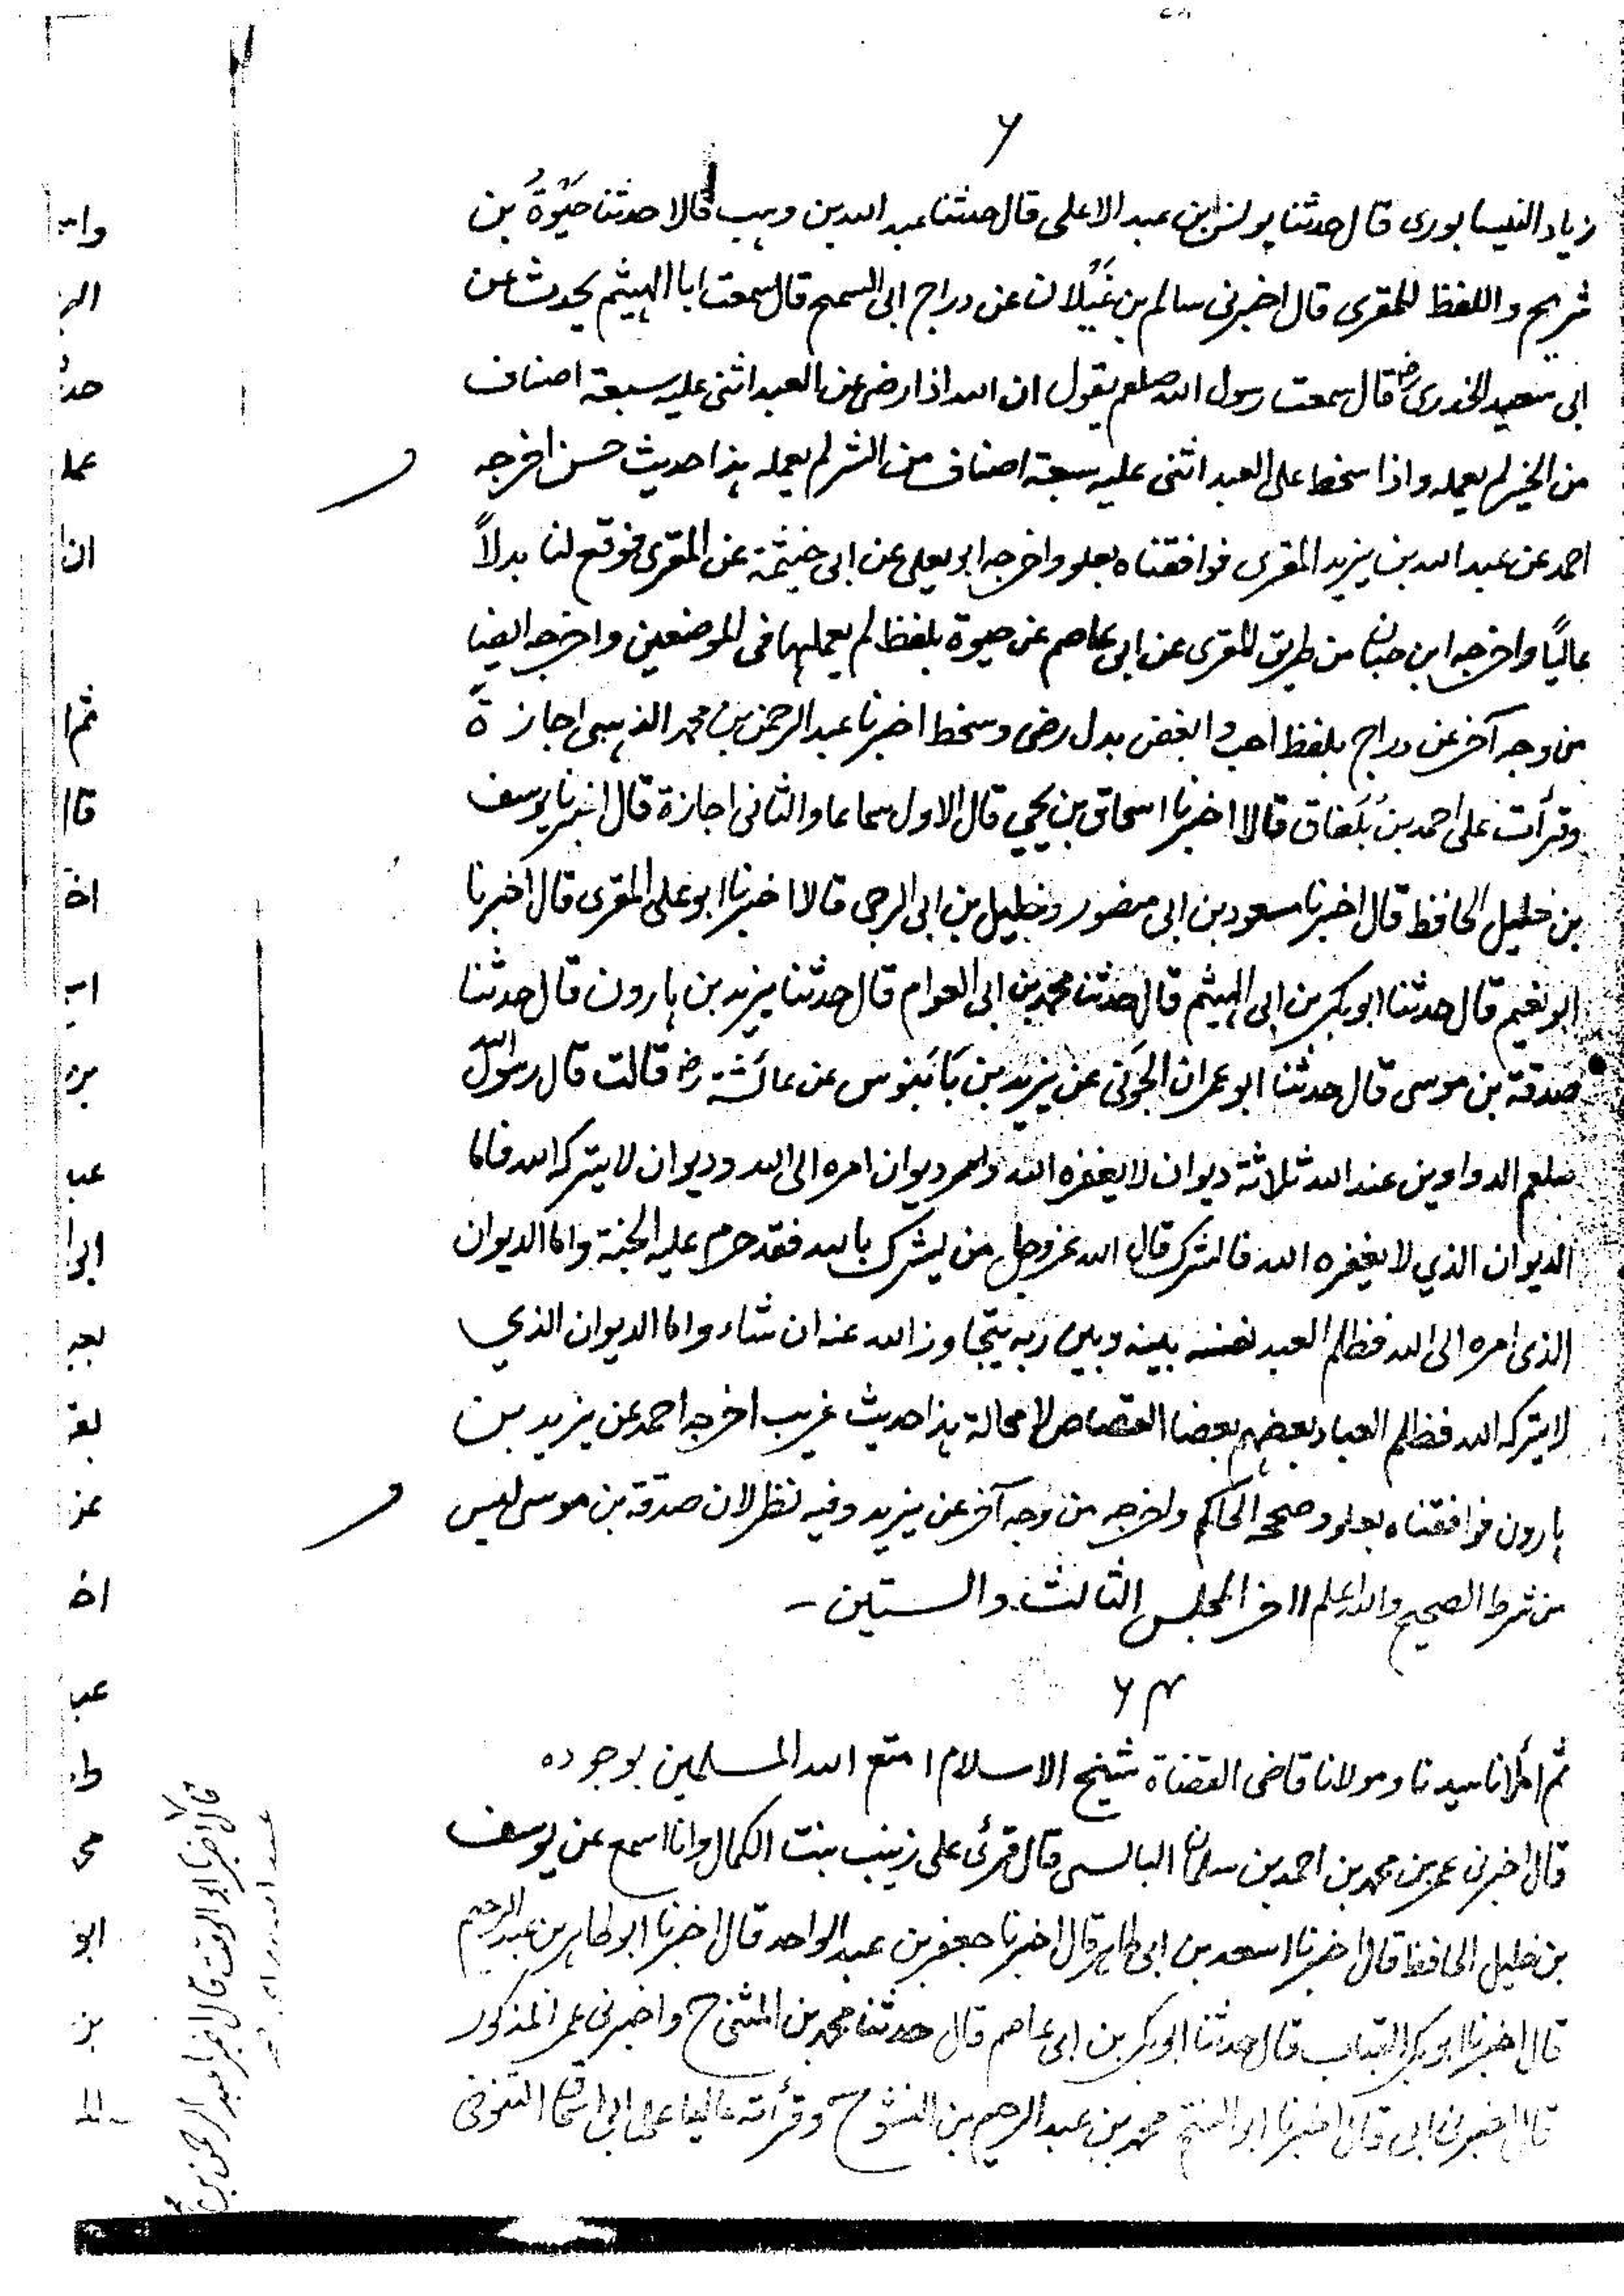 ۶
زياد النيسابوری قال حدثنا يونس بن عبد الاعلی قال حدثنا عبد الله بن وہب قالا حدثنا حَيْوةُ بن
شريح واللفظ للمقری قال اخبرنی سالم بن غَيْلان عن دراج ابی السمح قال سمعت ابا الہيثم يحدث عن
ابی سعيد الخدری رض قال سمعت رسول الله صلعم يقول ان الله اذا رضی عن العبد اثنی عليه سبعة اصناف
من الخير لم يعمله واذا سخط علی العبد اثنی عليه سبعة اصناف من الشر لم يعمله ہذا حديث حسن اخرجه
احمد عن عبد الله بن يزيد المقری فوافقناه بعلو واخرجه ابو يعلی عن ابی خيثمة عن المقری فوقع لنا بدلاً
عالياً واخرجه ابن حبان من طريق المقری عن ابی عاصم عن حيوة بلفظ لم يعملہا فی الموضعين واخرجه ايضا
من وجه آخر عن دراج بلفظ احب وابغض بدل رضی وسخط اخبرنا عبد الرحمن بن محمد الذہبی اجازةً
وقرأت علی احمد بن بَلغاق قالا اخبرنا اسحاق بن يحيي قال الاول سماعا والثانی اجازة قال اخبرنا يوسف
بن خليل الحافظ قال اخبرنا مسعود بن ابی منصور وخليل بن ابی الرجی قالا اخبرنا ابو علی المقری قال اخبرنا
ابو نعيم قال حدثنا ابو بکر بن ابی الہيثم قال حدثنا محمد بن ابی العوام قال حدثنا يزيد بن ہارون قال حدثنا
صدقة بن موسی قال حدثنا ابو عمران الجَونی عن يزيد بن بَابَنوس عن عائشة رض قالت قال رسول الله
صلعم الدواوين عند الله ثلاثة ديوان لا يغفره الله وديوان امره الی الله وديوان لا يترکه الله فاما
الديوان الذي لا يغفره الله فالشرک قال الله عز وجل من يشرک بالله فقد حرم عليه الجنة واما الديوان
الذی امره الی الله فظلم العبد نفسه بينه وبين ربه يتجاوز الله عنه ان شاء واما الديوان الذي
لا يترکه الله فظلم العباد بعضہم بعضا القصاص لا محالة ہذا حديث غريب اخرجه احمد عن يزيد بن
ہارون فوافقناه بعلو وصححه الحاکم واخرجه من وجه آخر عن يزيد وفيه نظر لان صدقة بن موسی ليس
من شرط الصحيح والله اعلم اآخر المجلس الثالث والستين -
۶۴
ثم أملانا سيدنا ومولانا قاضی القضاة شيخ الاسلام امتع الله المسلمين بوجوده
قال اخبرنی عمر بن محمد بن احمد بن سلمان البالسی قال قرئ علی زينب بنت الکمال وانا اسمع عن يوسف
بن خليل الحافظ قال اخبرنا اسعد بن ابی طاہر قال اخبرنا جعفر بن عبد الواحد قال اخبرنا ابو طاہر بن عبد الرحيم
قال اخبرنا ابو بکر القباب قال حدثنا ابو بکر بن ابی عاصم قال حدثنا محمد بن المثنی ح واخبرنی عمر المذکور
قال اخبرنی ابی قال اخبرنا ابو الفتح محمد بن عبد الرحيم بن النشو ح وقرأته عاليا علی ابی اسحاق التنوخی
قالا اخبرنا ابو الوقت قال اخبرنا عبد الرحمن بن